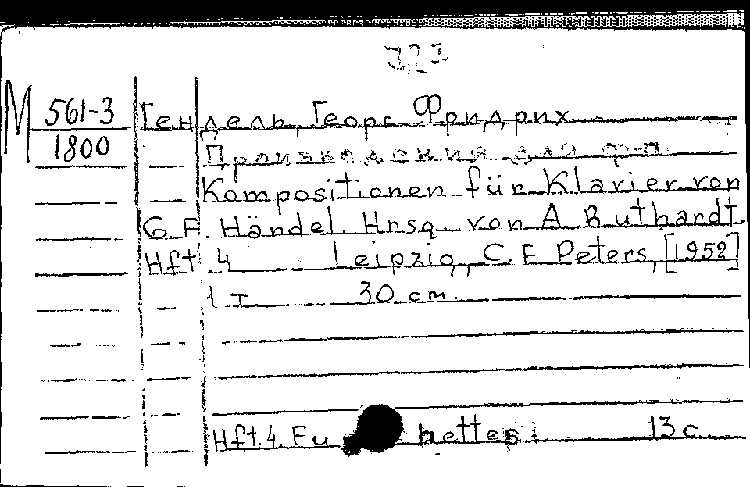 M 561-3
1800
Гендель, Георг Фридрих
Произведения для ф-п.
Kompositionen für Klavier von
G. F. Händel. Hrsg. von A. Ruthardt.
Hft. 4 Leipzig, C. F. Peters, [1952]
1 т 30 cm.
Hft. 4. 13 с.